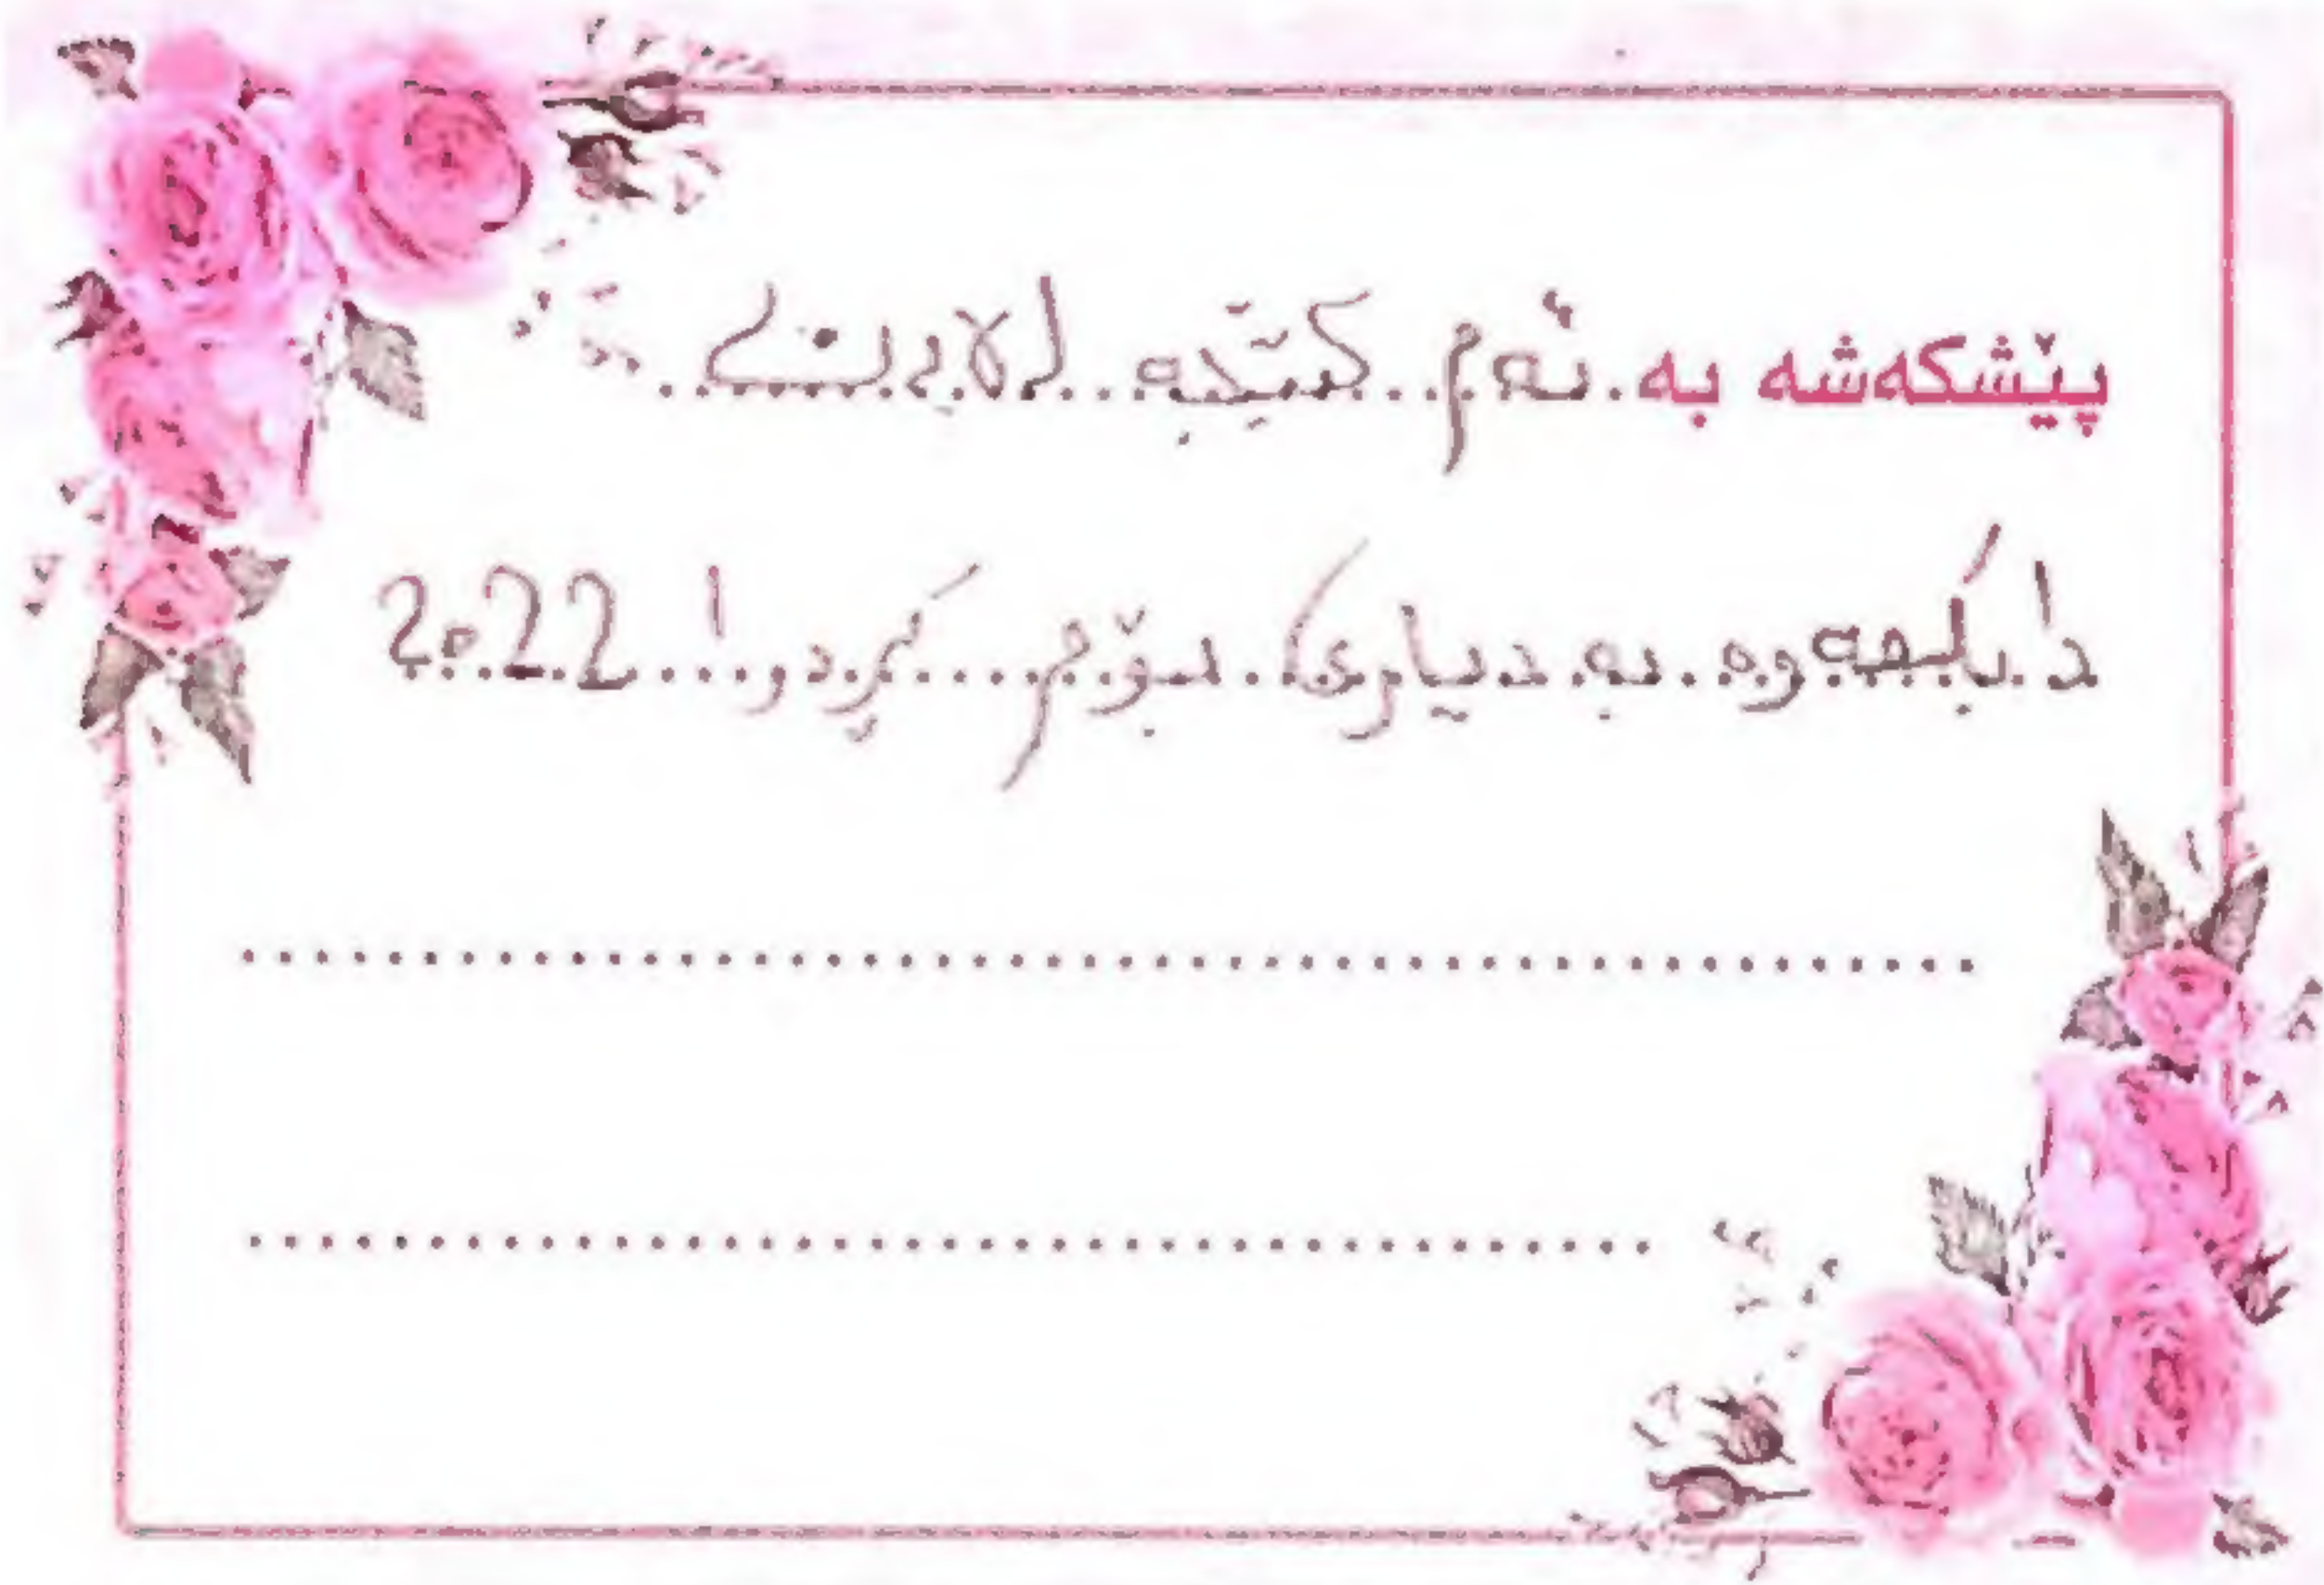 پێشکەشە بە ئەم کتێبە لەلایەن
دایکمەوە بە دیاری بۆم کردرا 2022